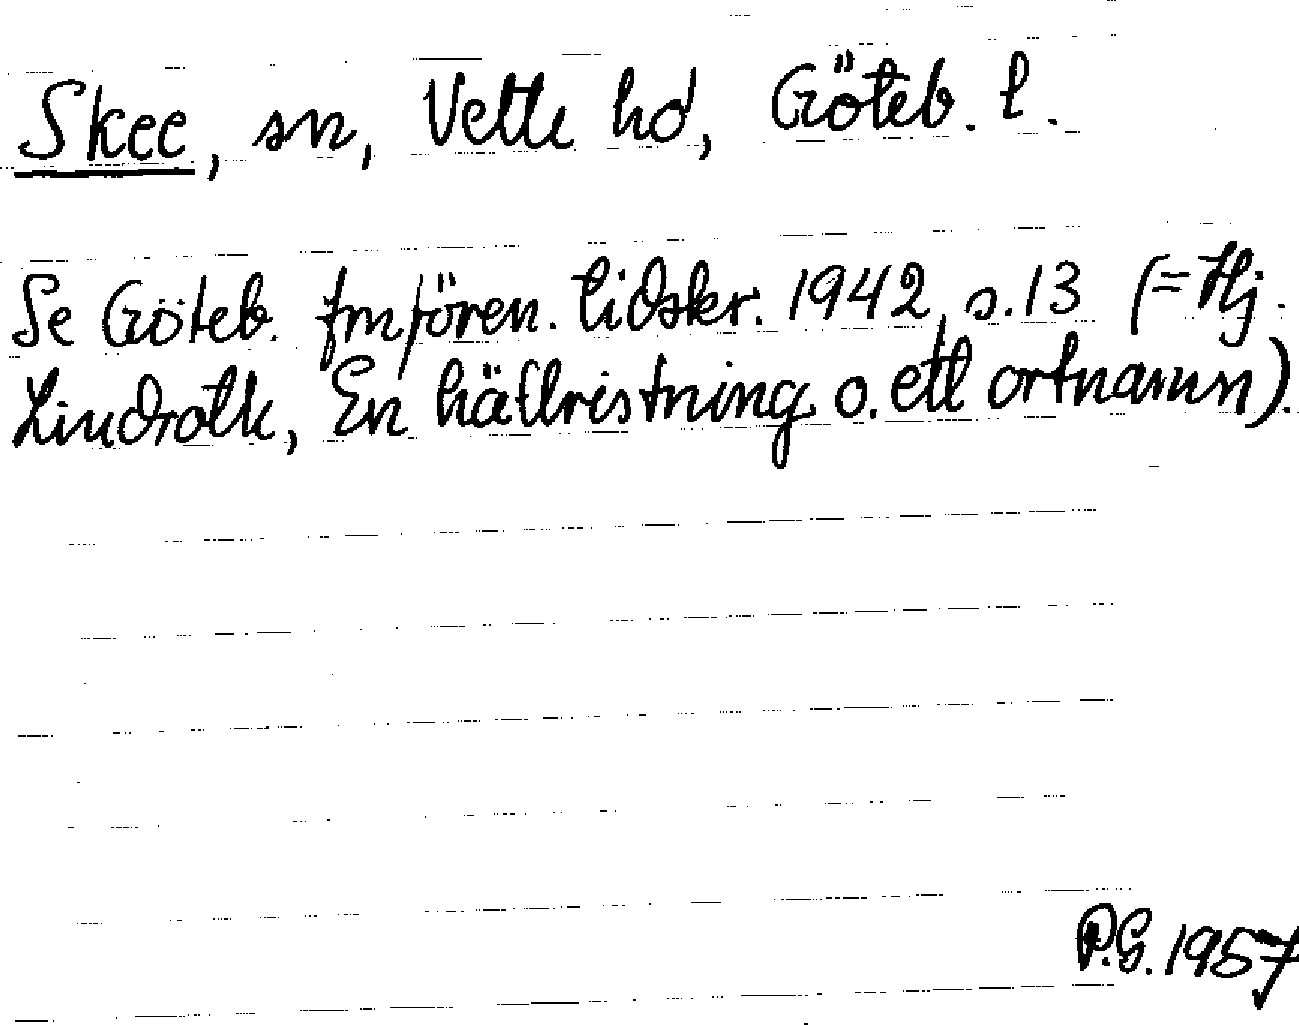 Skee, sn, Vette hd, Göteb. l.
Se Göteb. fmfören. tidskr. 1942, s. 13 (= Hj.
Lindroth, En hällristning o. ett ortnamn).
P.G. 1957